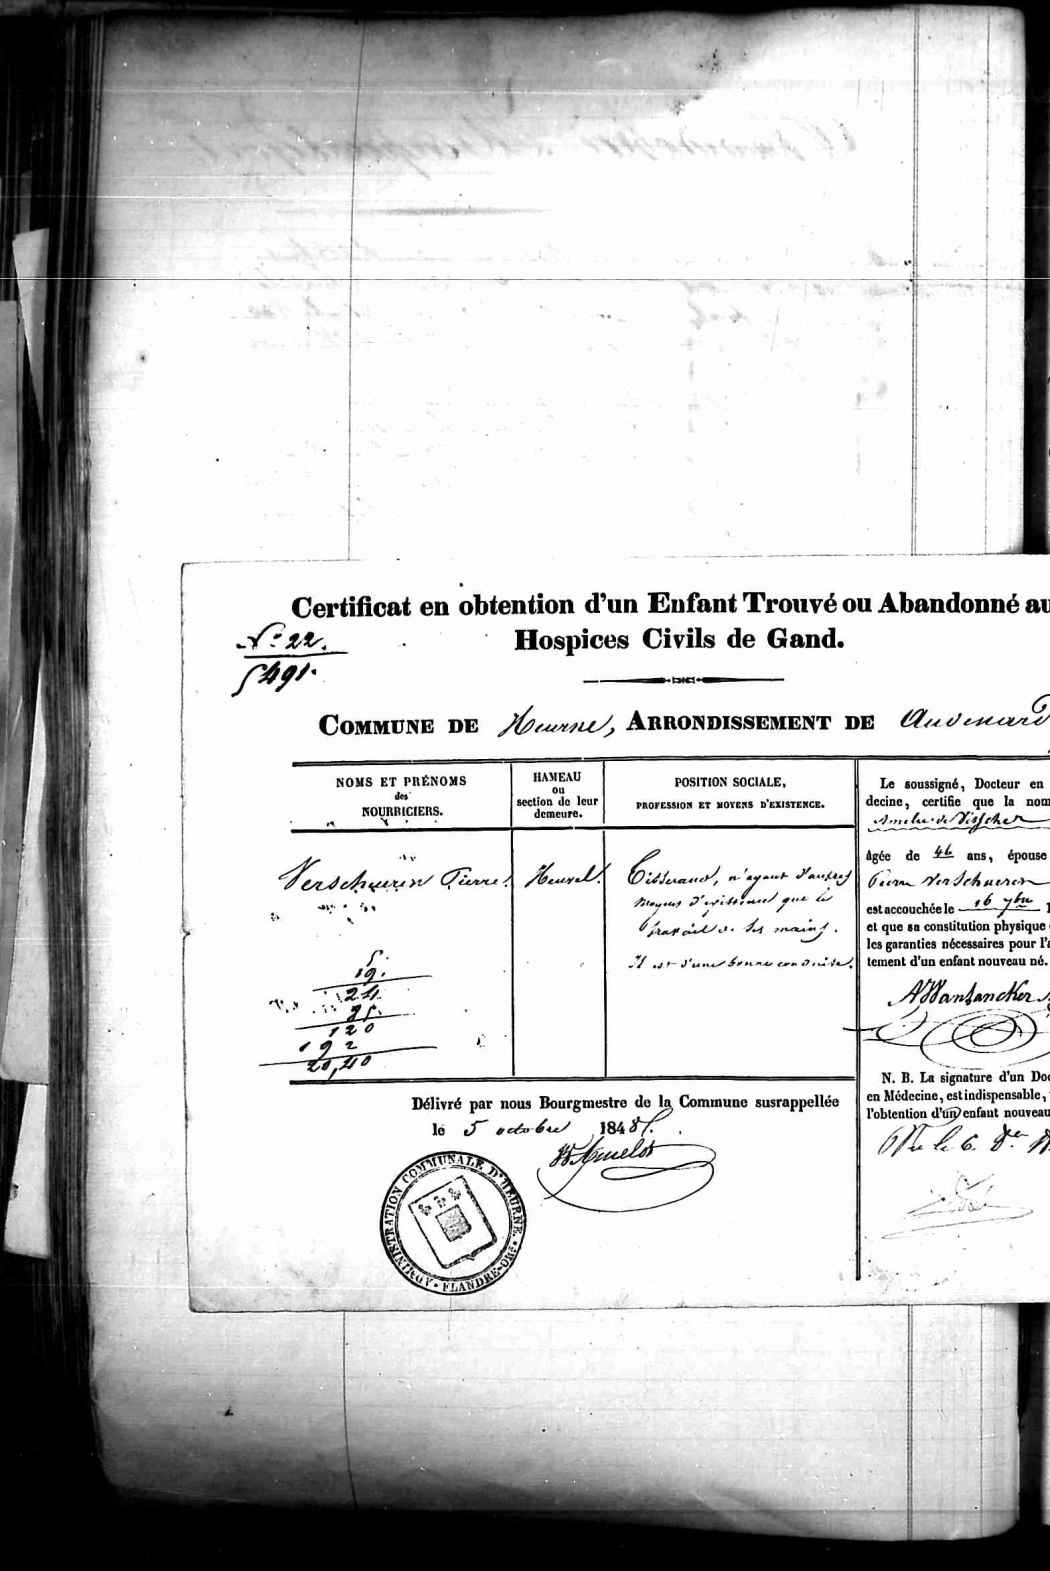 Certificat en obtention d'un Enfant Trouvé ou Abandonné au
Hospices Civils de Gand.
N° 22.
5491.
COMMUNE DE Heurne, ARRONDISSEMENT DE Audenard
NOMS ET PRÉNOMS
des
NOURRICIERS.
HAMEAU
ou
section de leur
demeure.
POSITION SOCIALE,
PROFESSION ET MOYENS D'EXISTENCE.
Verschueren Pierre.
Heuvel.
Tisserand, n'ayant d'autres
moyens d'existence que le
travail de ses mains.
Il est d'une bonne conduite.
5.
19.
24
120
192
20,40
Le soussigné, Docteur en
decine, certifie que la nom
Amelie de Visscher
âgée de 46 ans, épouse
Pierre Verschueren
est accouchée le 16 7bre 1
et que sa constitution physique
les garanties nécessaires pour l'a
tement d'un enfant nouveau né.
N. B. La signature d'un Doc
en Médecine, est indispensable,
l'obtention d'un enfant nouveau
Vu le 6.
Délivré par nous Bourgmestre de la Commune susrappellée
le 5 octobre 1848.
ADMINISTRATION COMMUNALE D'HEURNE.
FLANDRE-ORle